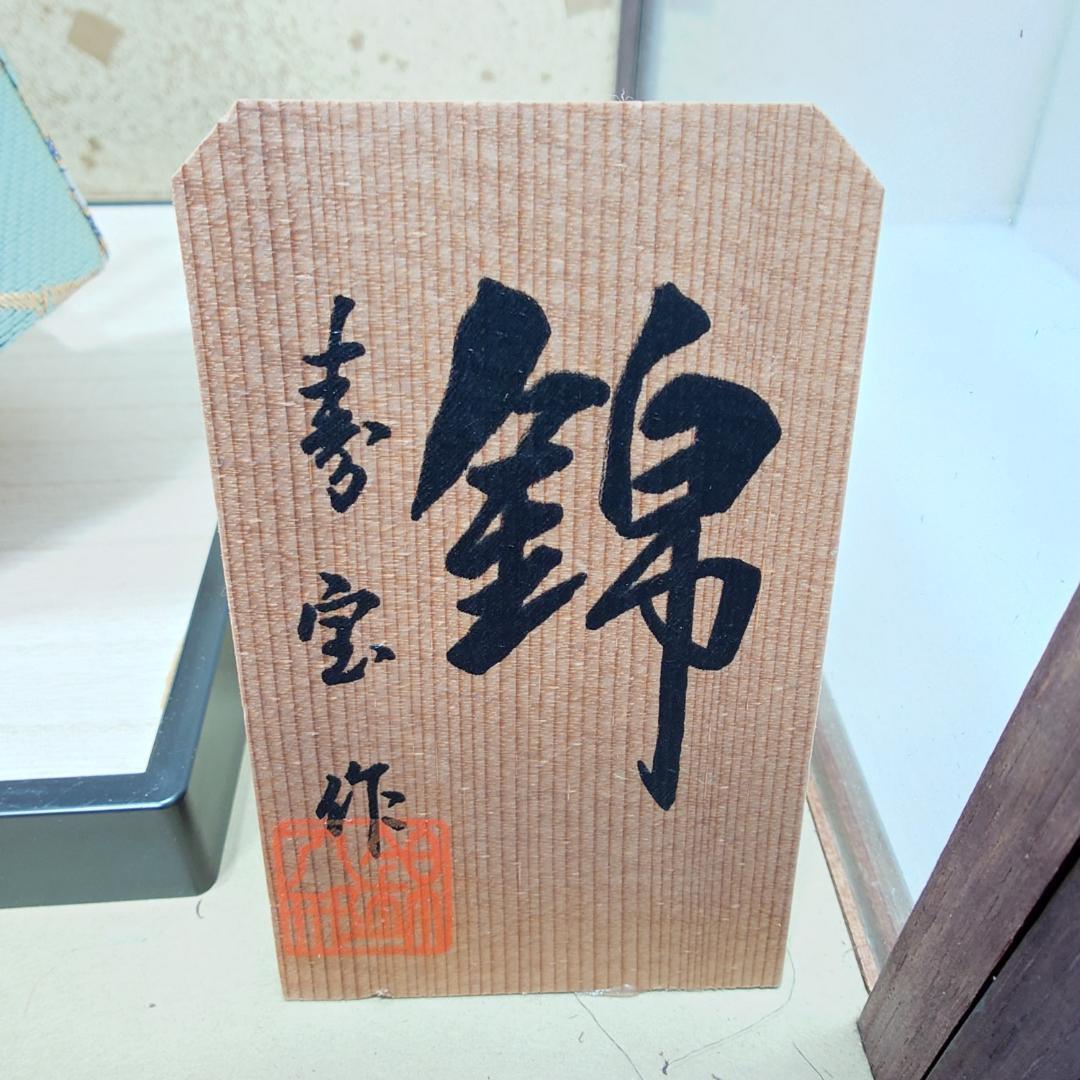 錦
寿宝作